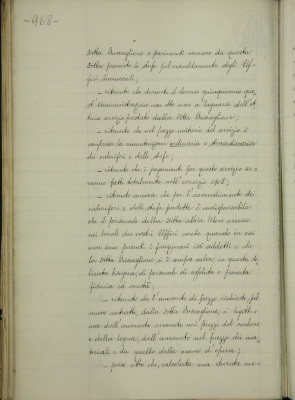 -968-
Ditta Busnaglione e parimenti venissero da questa
Ditta provviste le stufe pel riscaldamento degli Uf-
fici Comunali;
- ritenuto che durante il decorso quinquennio que-
st'Amministrazione non ebbe mai a lagnarsi dell'ot-
timo servizio prestato dalla Ditta Busnaglione;
- ritenuto che nel prezzo unitario del servizio è
compresa la manutenzione ordinaria e straordinaria
dei caloriferi e delle stufe;
- ritenuto che i pagamenti per questo servizio sa-
ranno fatti totalmente sull'esercizio 1908;
- ritenuto ancora che per l'accendimento dei
caloriferi e delle stufe predette è indispensabile
che il personale della Ditta abbia libero accesso
nei locali dei vostri Uffici anche quando in essi
non sono presenti i funzionari addetti e che
la Ditta Busnaglione si è sempre valsa, in questa de-
licata bisogna, di personale di assoluta e provata
fiducia ed onestà;
- ritenuto che l'aumento di prezzo richiesto, pel
nuovo contratto, dalla Ditta Busnaglione, si legitti-
ma dall'aumento avvenuto nei prezzi del carbone
e della legna, dall'aumento nel prezzo dei ma-
teriali e da quello della mano d'opera;
- preso atto che, calcolata una durata me-